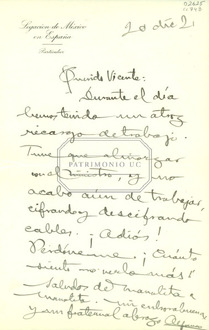 Legación de México
en España
Particular
20 dic 21
Querido Vicente:
Durante el día
hemos tenido un atroz
recargo de trabajo.
Tuve que almorzar
con el Ministro, y no
acabo aún de trabajar,
cifrando y descifrando
cables. ¡Adiós!
Perdóneme. ¡Cuánto
siento no verla más!
Saludos de Manolita e
y un fraternal abrazo
PATRIMONIO UC